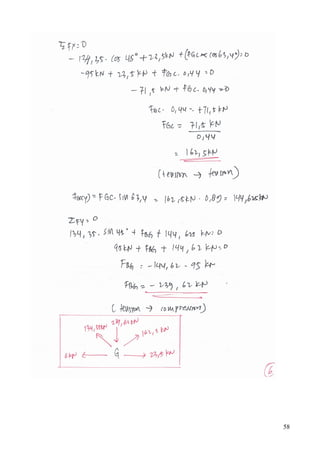 ΣFy=0
- 134,35. cos 45° + 23,5kN + (FGC × cos 63,4°)=0
-95kN + 23,5kN + FGC. 0,44 = 0
-71,5 kN + FGC. 0,44 = 0
FGC. 0,44 = +71,5 kN
FGC = 71,5 kN
0,44
= 162,5kN
(tension → tension)
= FGC. sin 63,4 = 162,5kN . 0,89 = 144,625kN
ΣFy = 0
134,35. sin 45° + FBG + 144,625 kN = 0
95kN + FBG + 144,62 kN = 0
FBG = -144,62 - 95 kN
FBG = - 239,62 kN
(tension → compression)
239,62kN
162,5 kN
G
23,5 kN
6
58